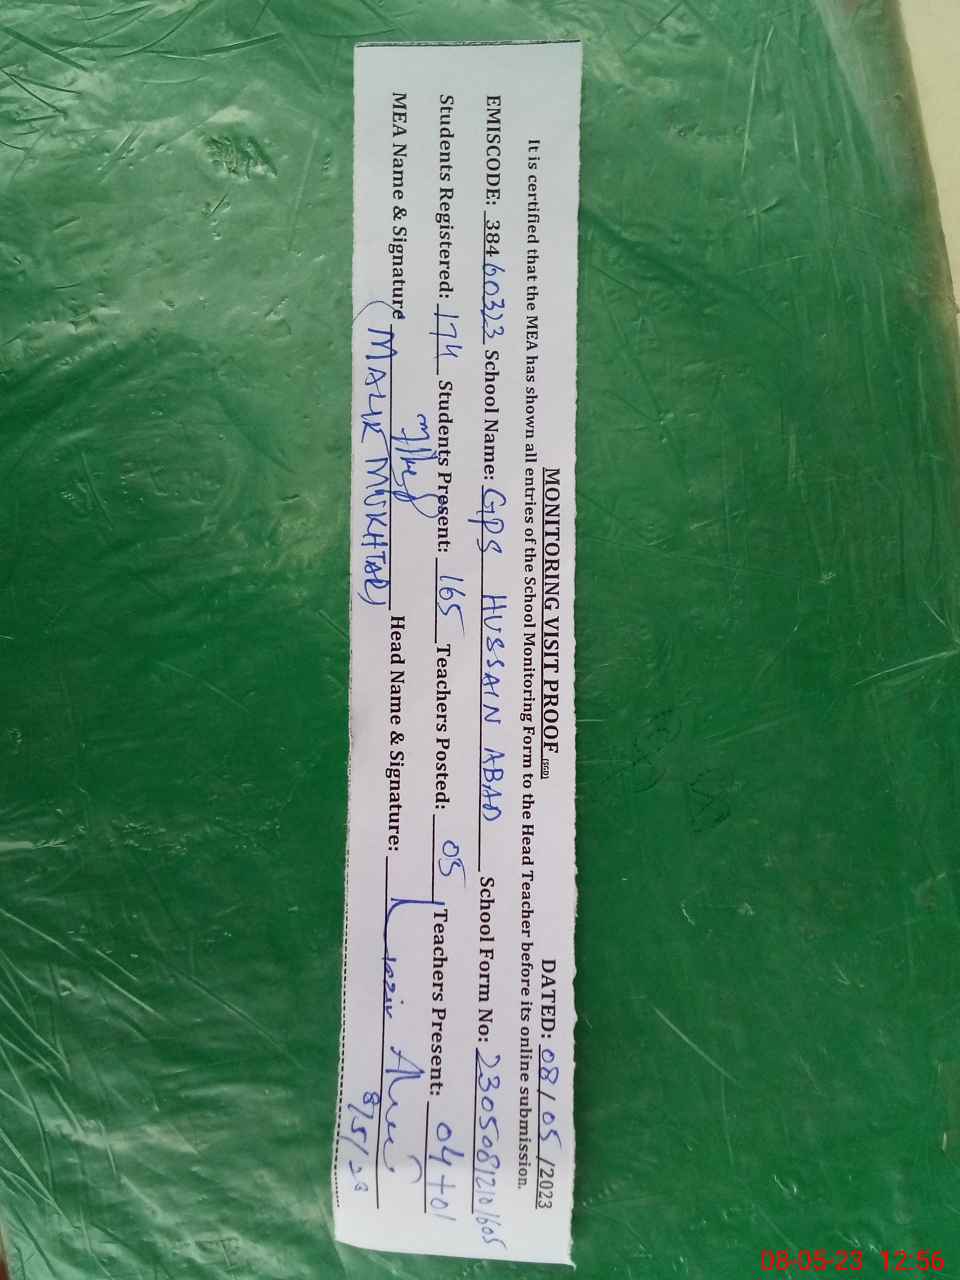 MONITORING VISIT PROOF (SGD) DATED: 08/05/2023
It is certified that the MEA has shown all entries of the School Monitoring Form to the Head Teacher before its online submission.
EMISCODE: 38460323 School Name: GPS HUSSAIN ABAD School Form No: 23050812101605
Students Registered: 174 Students Present: 165 Teachers Posted: 05 Teachers Present: 04+01
MEA Name & Signature Head Name & Signature:
(MALIK MUKHTAR) 8/5/23
08-05-23 12:56